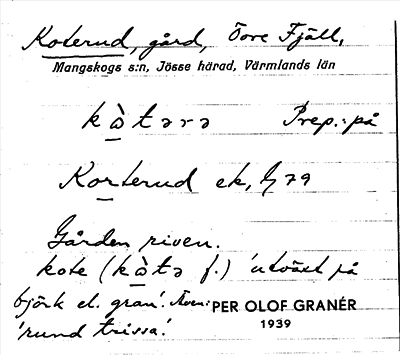 Koterud, gård, Övre Fjäll,
Mangskogs s:n, Jösse härad, Värmlands län
kòtərə Prep.: på
Korterud ek, G 79
Gården riven.
kote (kòtə f.) 'utväxt på
björk el. gran'. Även:
'rund trissa'.
PER OLOF GRANÉR
1939